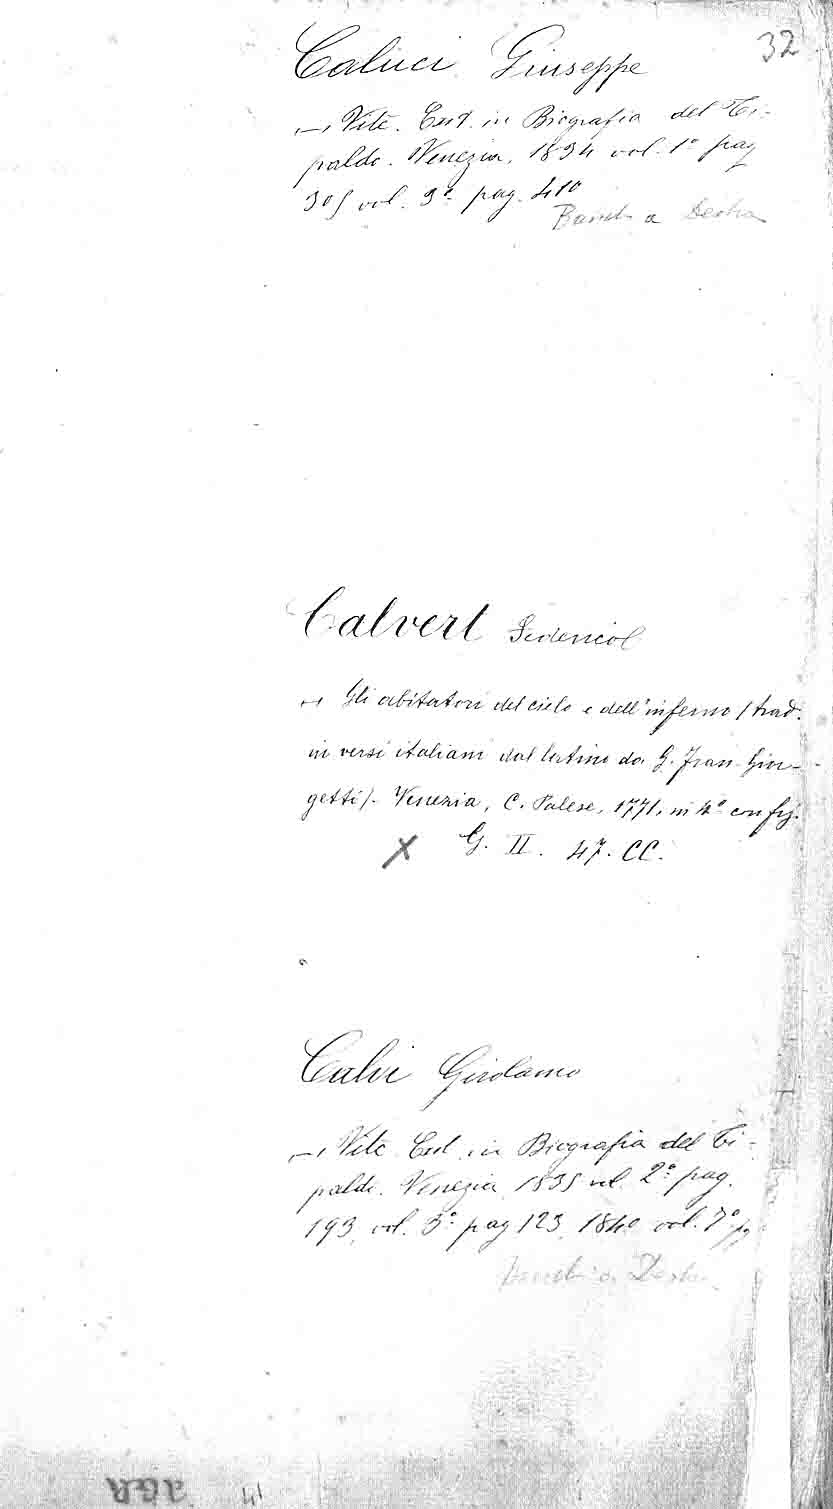 32
Caluci Giuseppe
— Vite. Est. in Biografia del Ti-
paldo. Venezia, 1834 vol. 1° pag
305 vol. 3° pag. 410
Banch a Destra
Calvert Federico
— Gli abitatori del cielo e dell'inferno (trad.
in versi italiani dal latino da G. Fran. Gior-
getti). Venezia, C. Palese, 1771, in 4° con fig.
X G. II. 47. CC.
Calvi Girolamo
— Vite Est. in Biografia del Ti-
paldo. Venezia 1835 vol. 2° pag.
193, vol. 3° pag 123, 1840 vol. 7° pg
a Destra